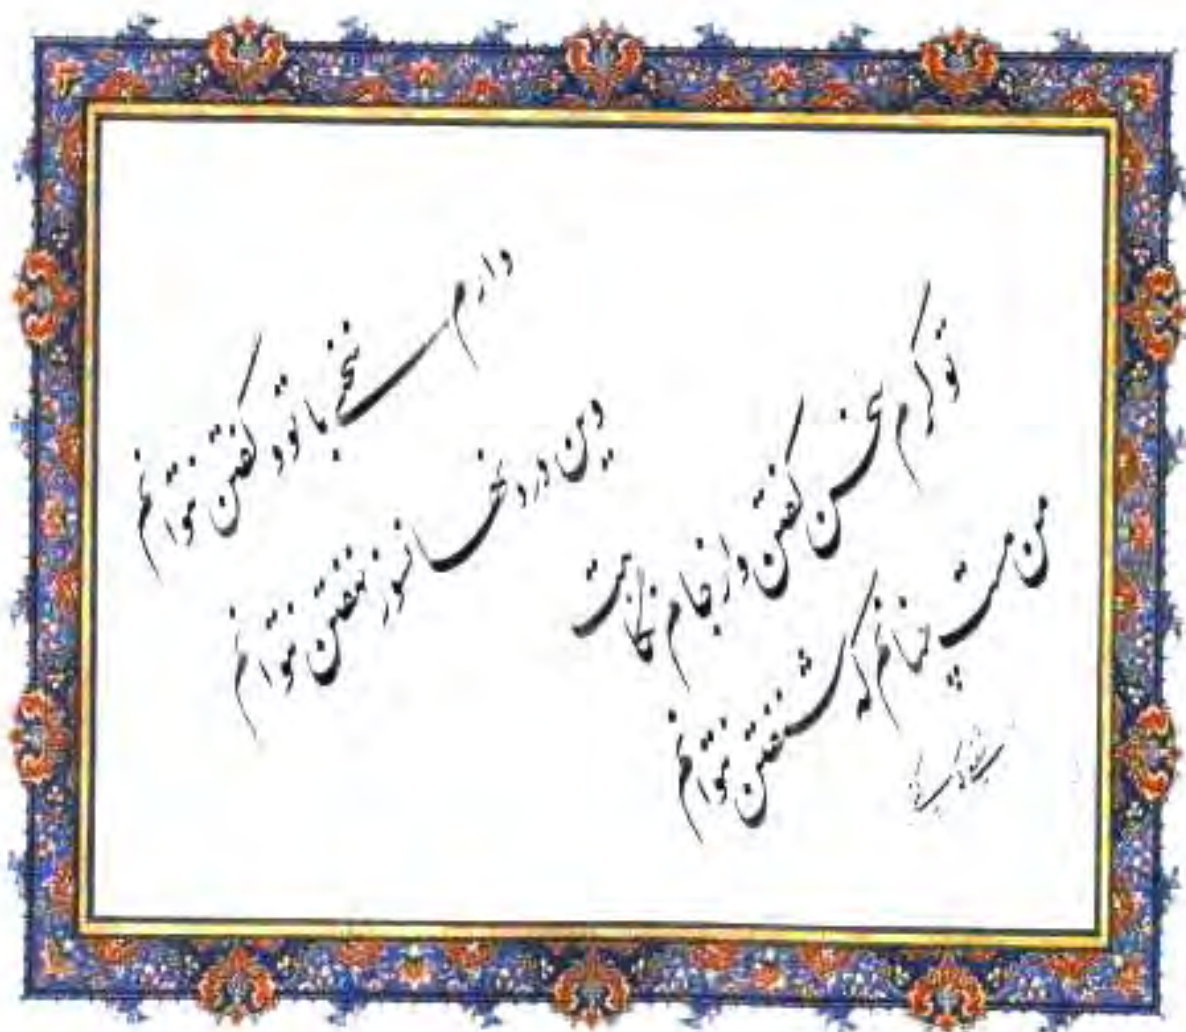 دارم سخنی با تو و گفتن نتوانم
وین درد نهانسوز نهفتن نتوانم
تو گرم سخن گفتن و از جام نگاهت
من مست چنانم که شنفتن نتوانم
شفیعی کدکنی